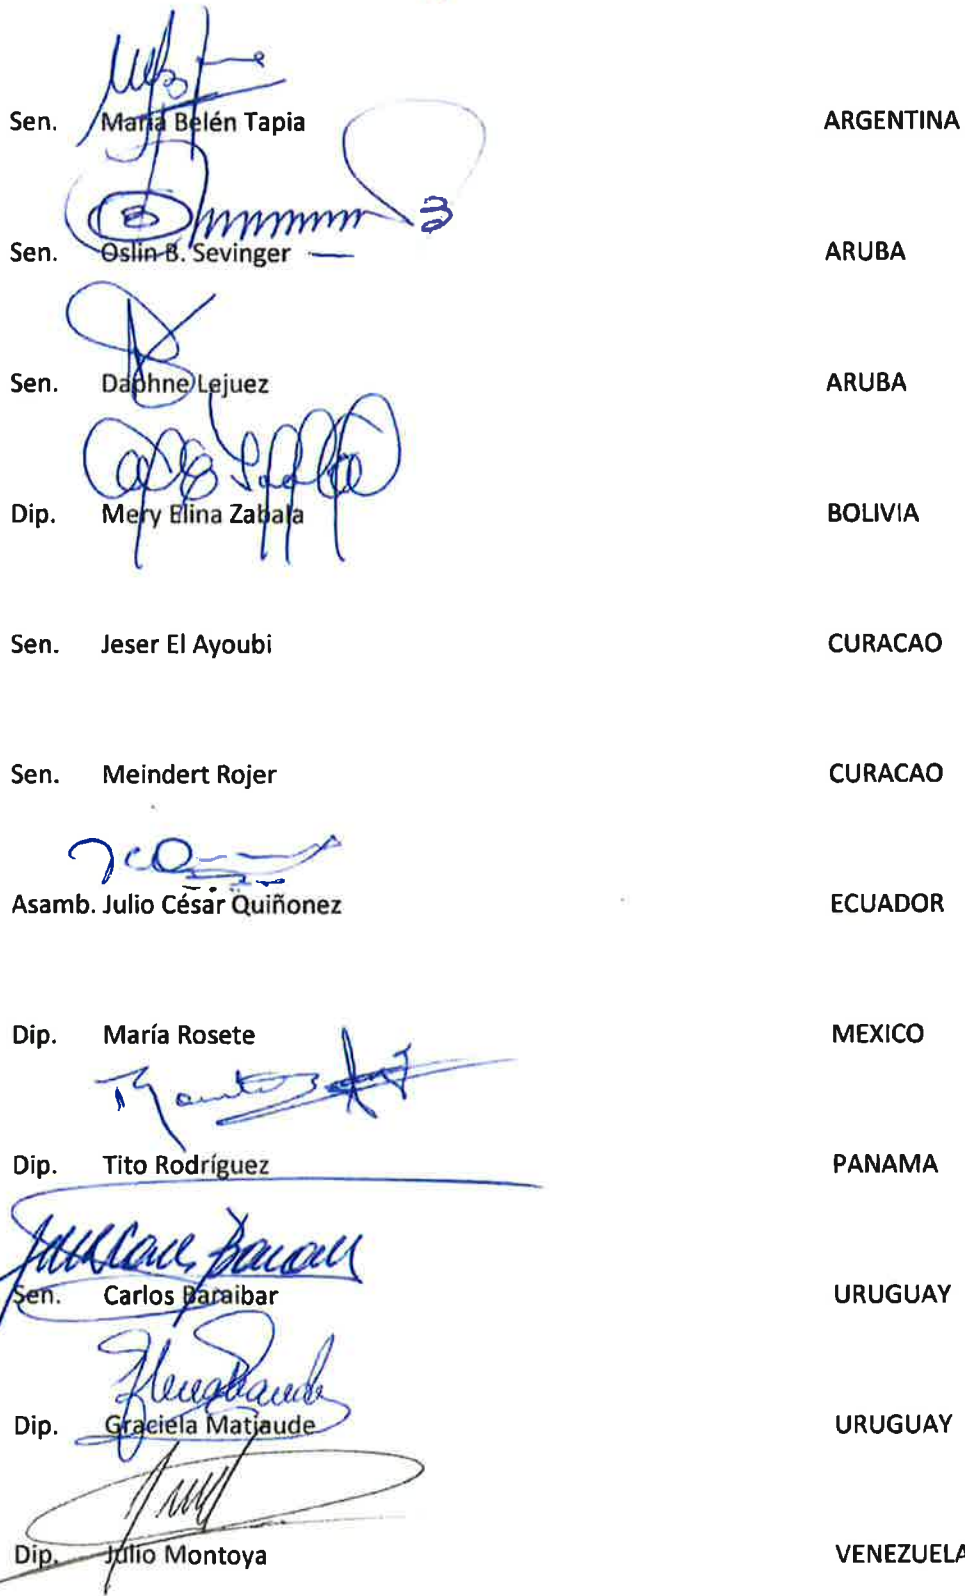 Sen. María Belén Tapia ARGENTINA
Sen. Oslin B. Sevinger ARUBA
Sen. Daphne Lejuez ARUBA
Dip. Mery Elina Zabala BOLIVIA
Sen. Jeser El Ayoubi CURACAO
Sen. Meindert Rojer CURACAO
Asamb. Julio César Quiñonez ECUADOR
Dip. María Rosete MEXICO
Dip. Tito Rodríguez PANAMA
Sen. Carlos Baraibar URUGUAY
Dip. Graciela Matiaude URUGUAY
Dip. Julio Montoya VENEZUELA